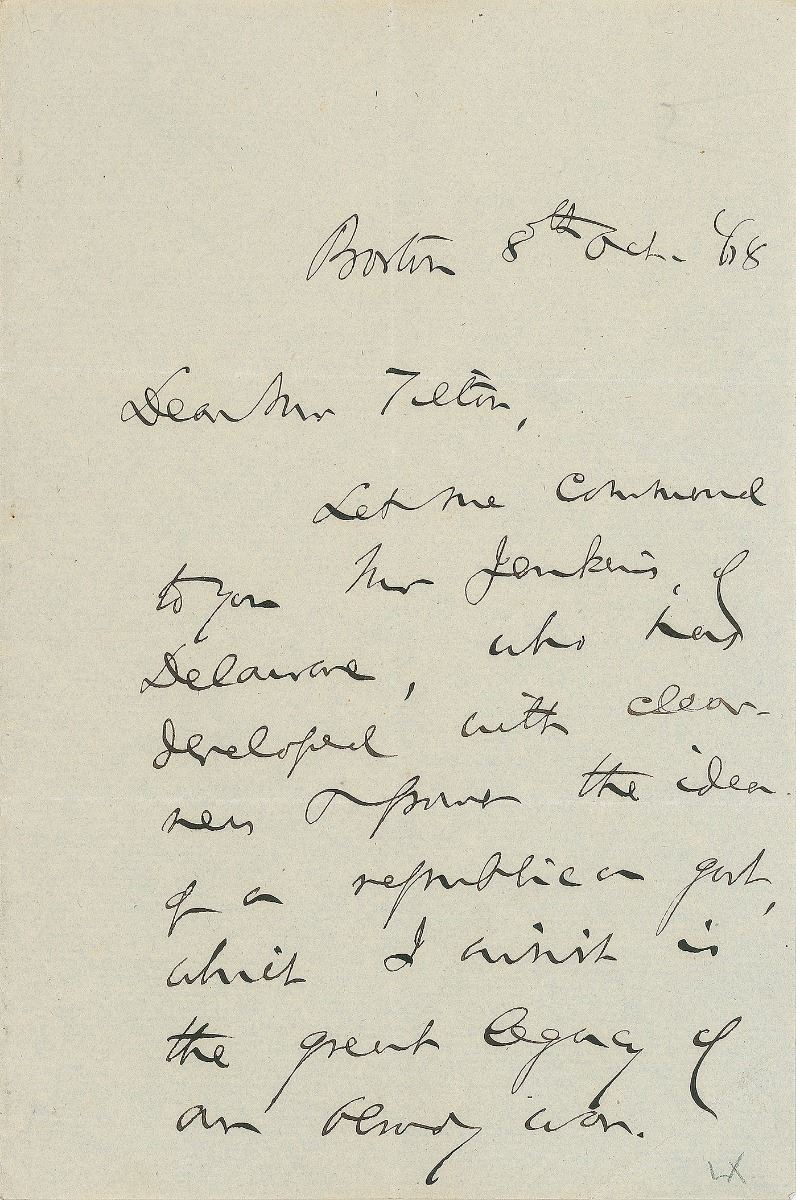 Boston 8th Oct. '68
Dear Mr Tilton,
Let me commend
to you Mr Jenkins, of
Delaware, who has
developed with clear-
ness & power the idea
of a republican govt,
which I insist is
the great legacy of
our bloody war.